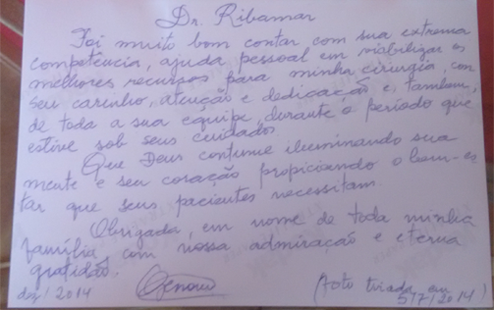 Dr. Ribamar
Foi muito bom contar com sua extrema
competência, ajuda pessoal em viabilizar os
melhores recursos para minha cirurgia, com
seu carinho, atenção e dedicação e, também,
de toda a sua equipe, durante o período que
estive sob seus cuidados.
Que Deus continue iluminando sua
mente e seu coração propiciando o bem-es
tar que seus pacientes necessitam.
Obrigada, em nome de toda minha
família, com nossa admiração e eterna
gratidão.
dez/2014
(foto tirada em
5/7/2014)